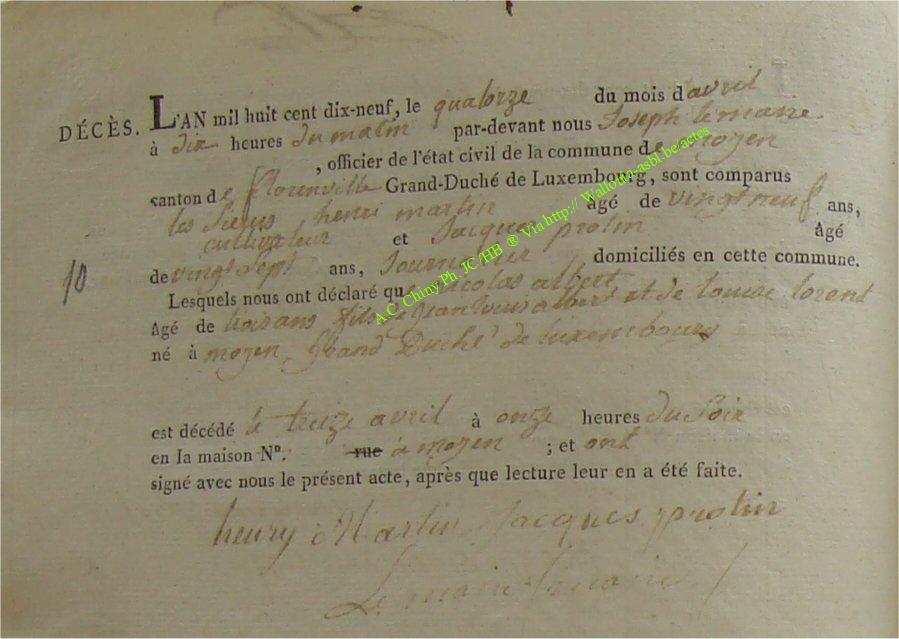 DÉCÈS. L'AN mil huit cent dix-neuf, le quatorze du mois d'avril
à dix heures du matin par-devant nous Joseph lemaire
, officier de l'état civil de la commune de moyen
canton de florenville Grand-Duché de Luxembourg, sont comparus
les Sieurs henri martin âgé de vingt neuf ans,
cultivateur et Jacques protin âgé
de vingt Sept ans, Journalier domiciliés en cette commune.
10
Lesquels nous ont déclaré que nicolas albert
âgé de trois ans fils de jean louis albert et de louise lorent
né à moyen, grand Duché de luxembourg
est décédé le treize avril à onze heures du Soir
en la maison Nº. rue à moyen ; et ont
signé avec nous le présent acte, après que lecture leur en a été faite.
henry Martin Jacques protin
A.C. Chiny Ph. JC/HB ® Via http://Wallonia-asbl.be/actes